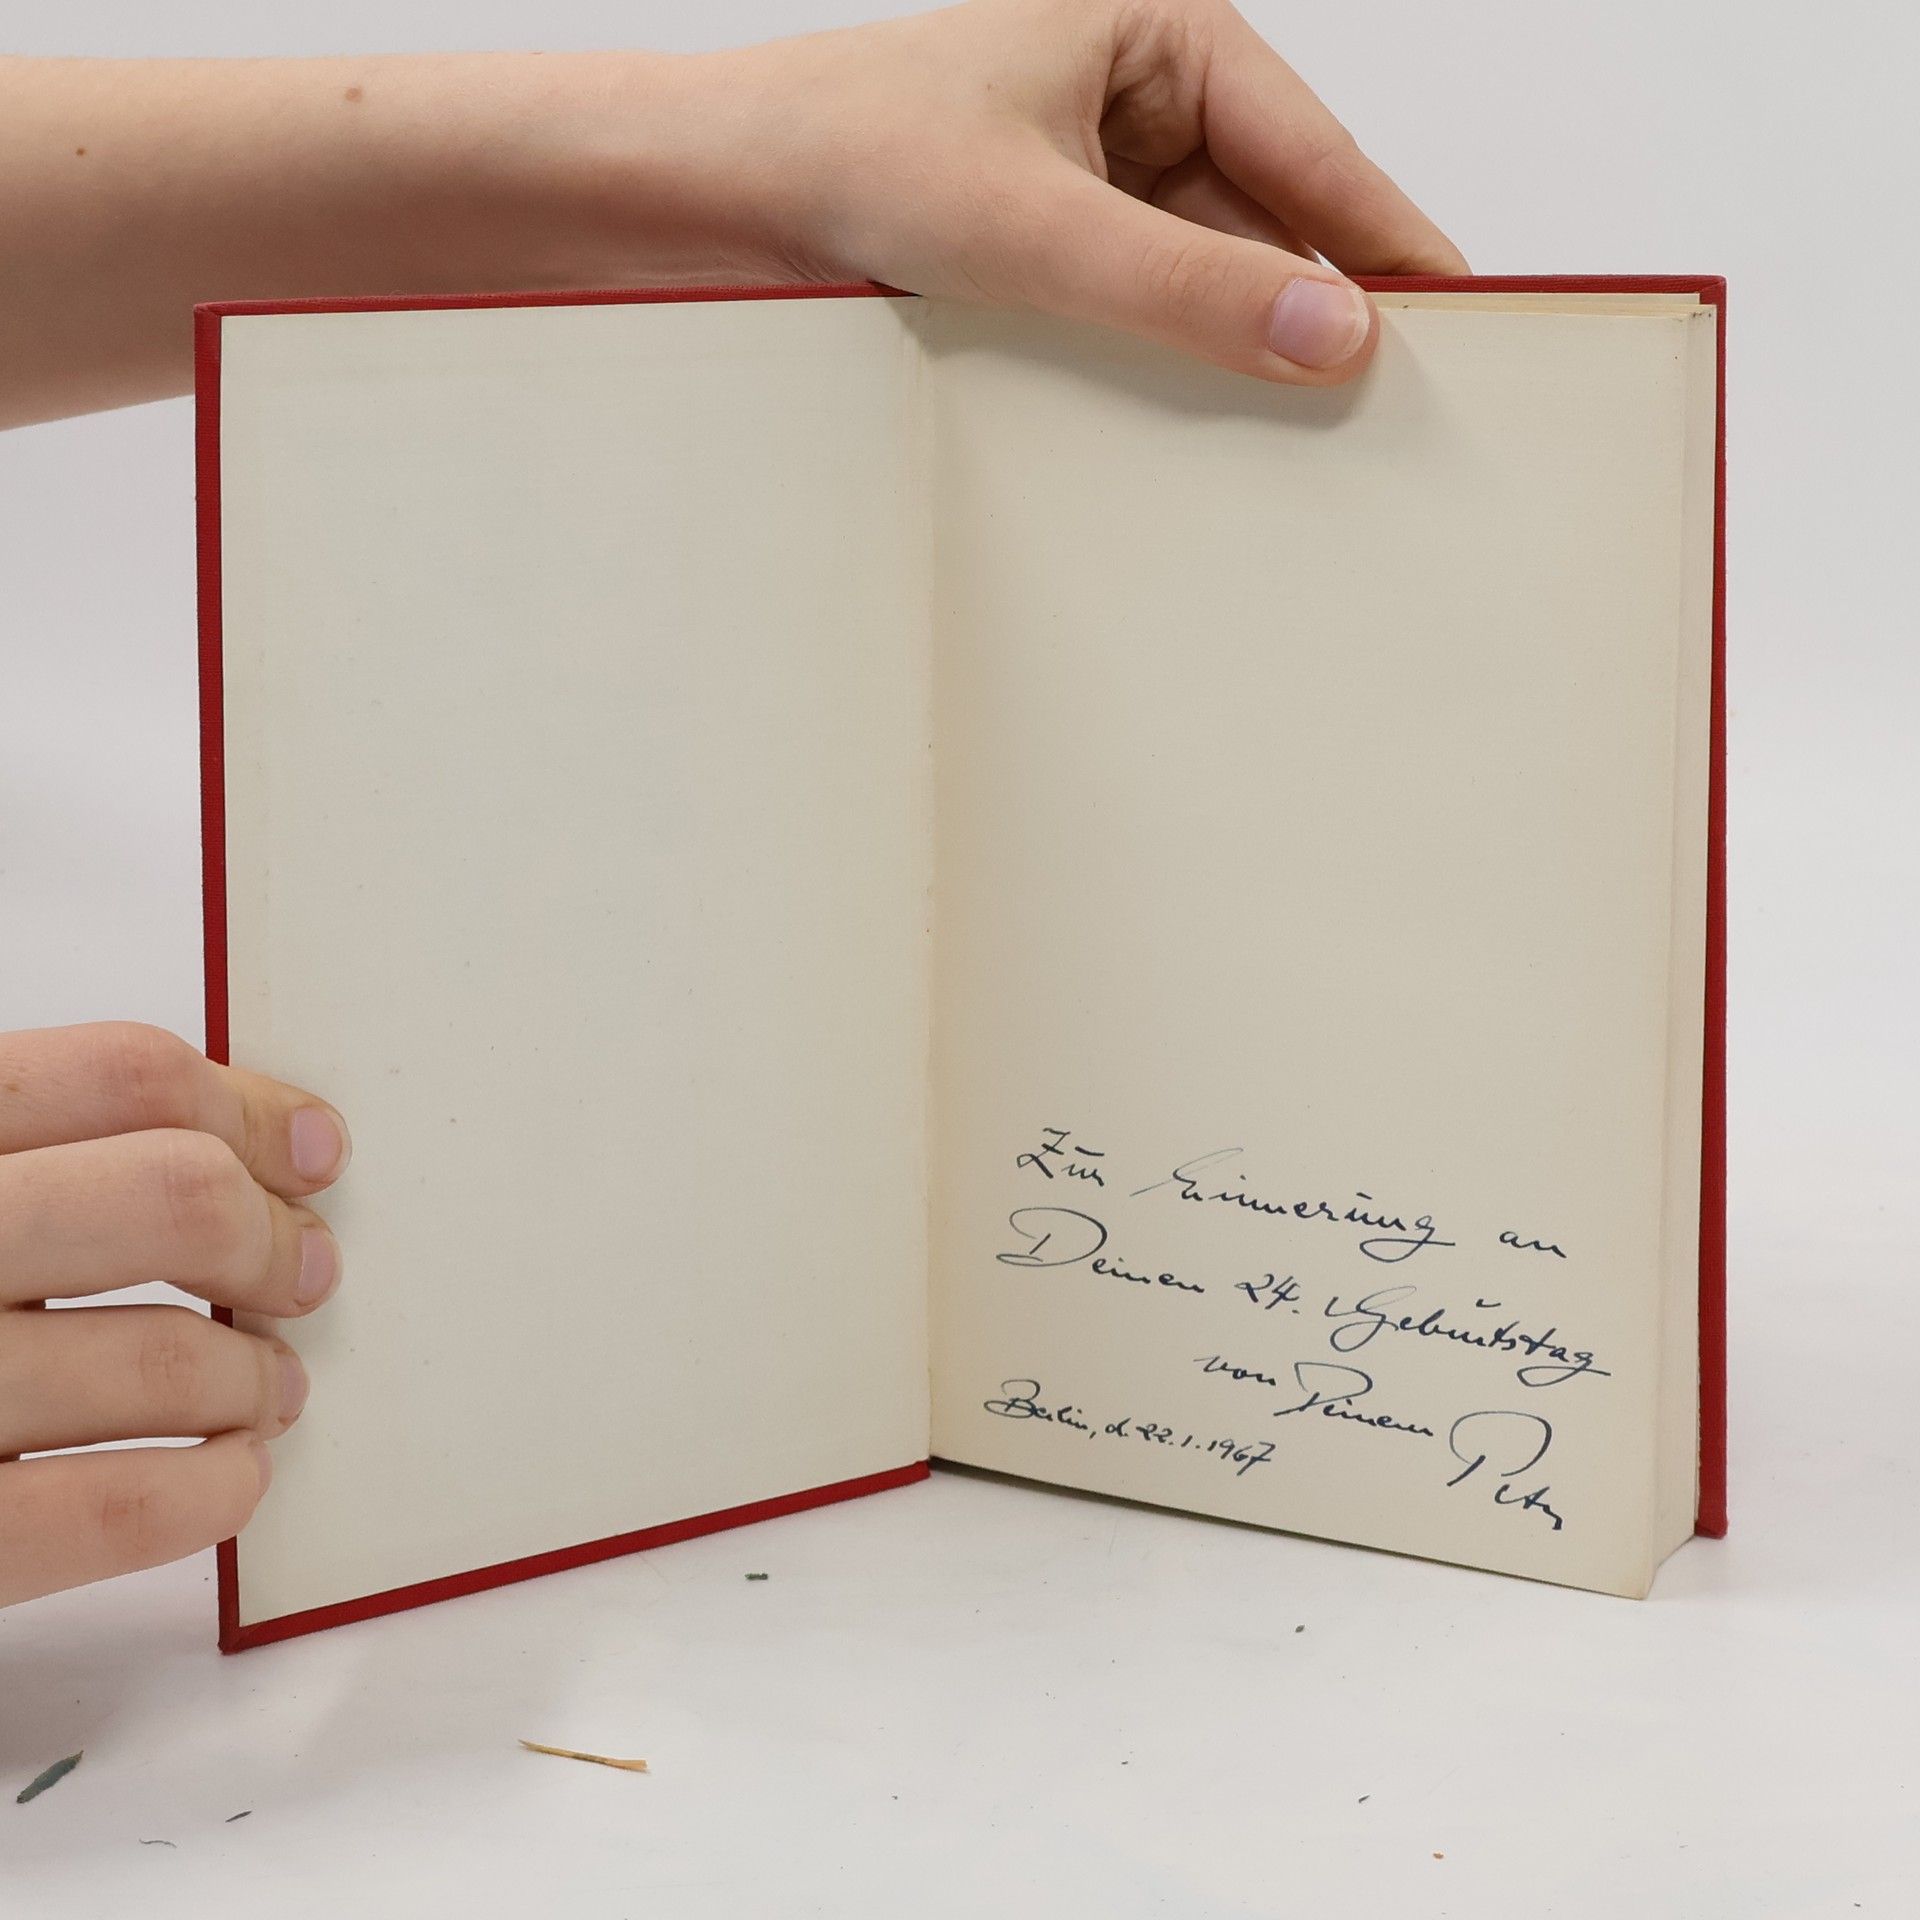 Zur Erinnerung an
Deinen 24. Geburtstag
von Deinem Peter
Berlin, d. 22.1.1967